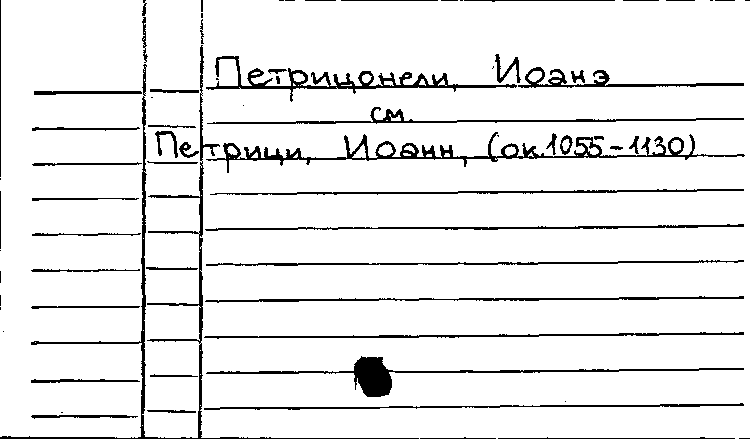 Петрицонели, Иоанэ
см.
Петрици, Иоанн, (ок.1055-1130)